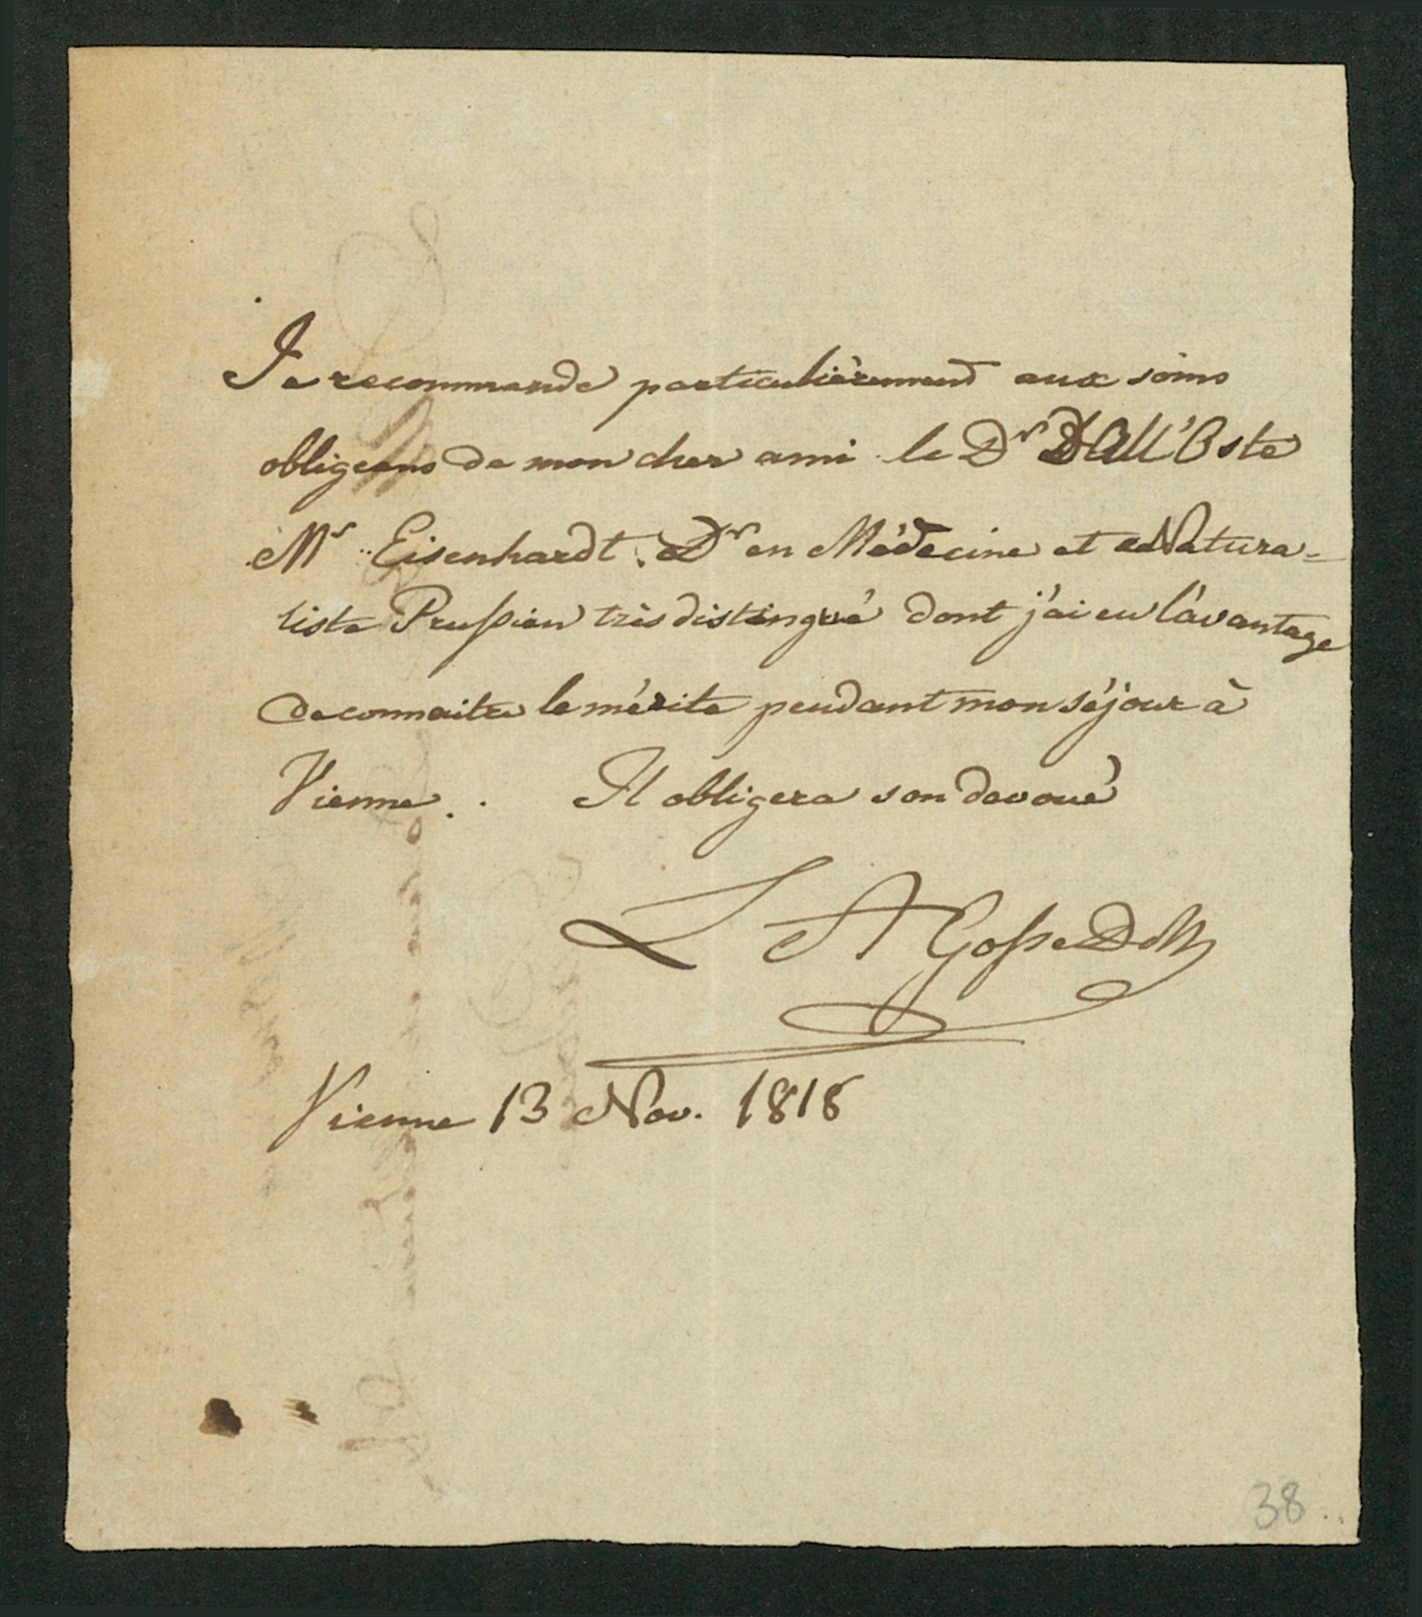 Je recommande particulièrement aux soins
obligeans de mon cher ami le Dr Dall'Oste
Mr Eisenhardt. Dr en Médecine et Natura=
liste Prussien très distingué dont j'ai eu l'avantage
de connaitre le mérite pendant mon séjour à
Vienne. Il obligera son devoué
L A Gosse DM
Vienne 13 Nov. 1818
38